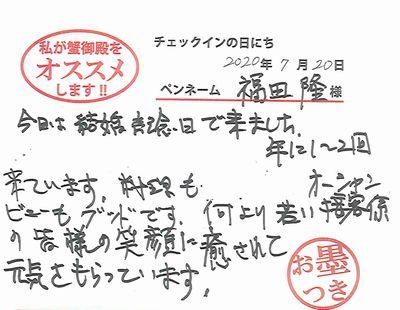 私が蟹御殿を
オススメ
します!!
チェックインの日にち
2020年7月20日
ペンネーム 福田 隆 様
今日は結婚記念日で来ました。
年に1〜2回
来ています。料理も オーシャン
ビューもグッドです。何より若い接客係
の皆様の笑顔に癒されて
元気をもらっています。
お墨
つき